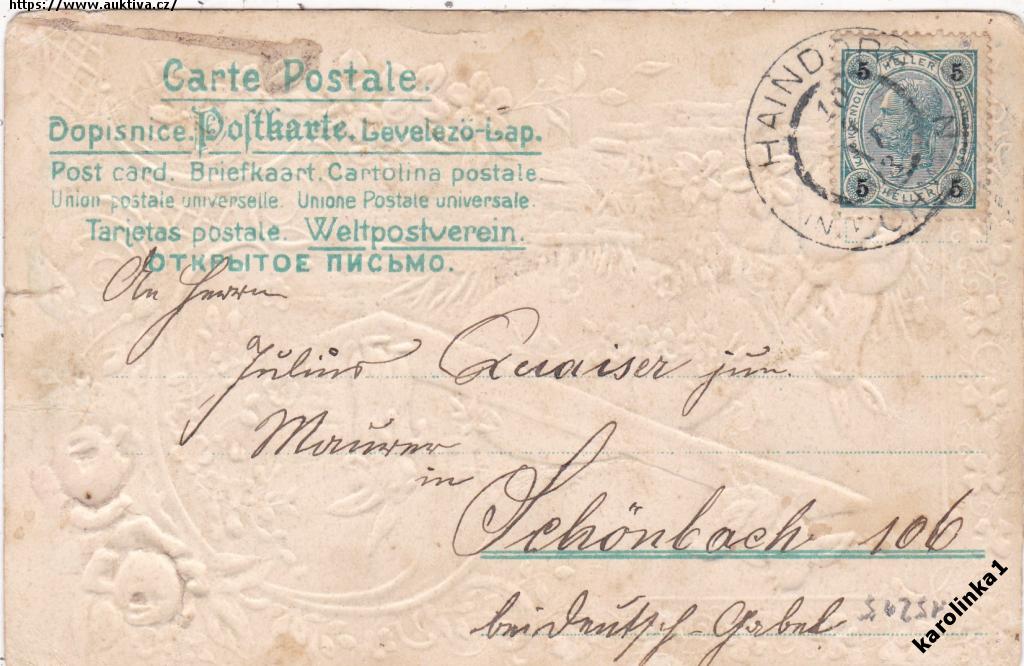 https://www.auktiva.cz/
Carte Postale.
Dopisnice. Postkarte. Levelező-Lap.
Post card. Briefkaart. Cartolina postale.
Union postale universelle. Unione Postale universale.
Tarjetas postale. Weltpostverein.
ОТКРЫТОЕ ПИСЬМО.
HAINDORF
5 HELLER 5
5 HELLER 5
An Herrn
Julius Quaiser jun.
Maurer
in
Schönbach 106
bei Deutsch-Gabel
karolinka1